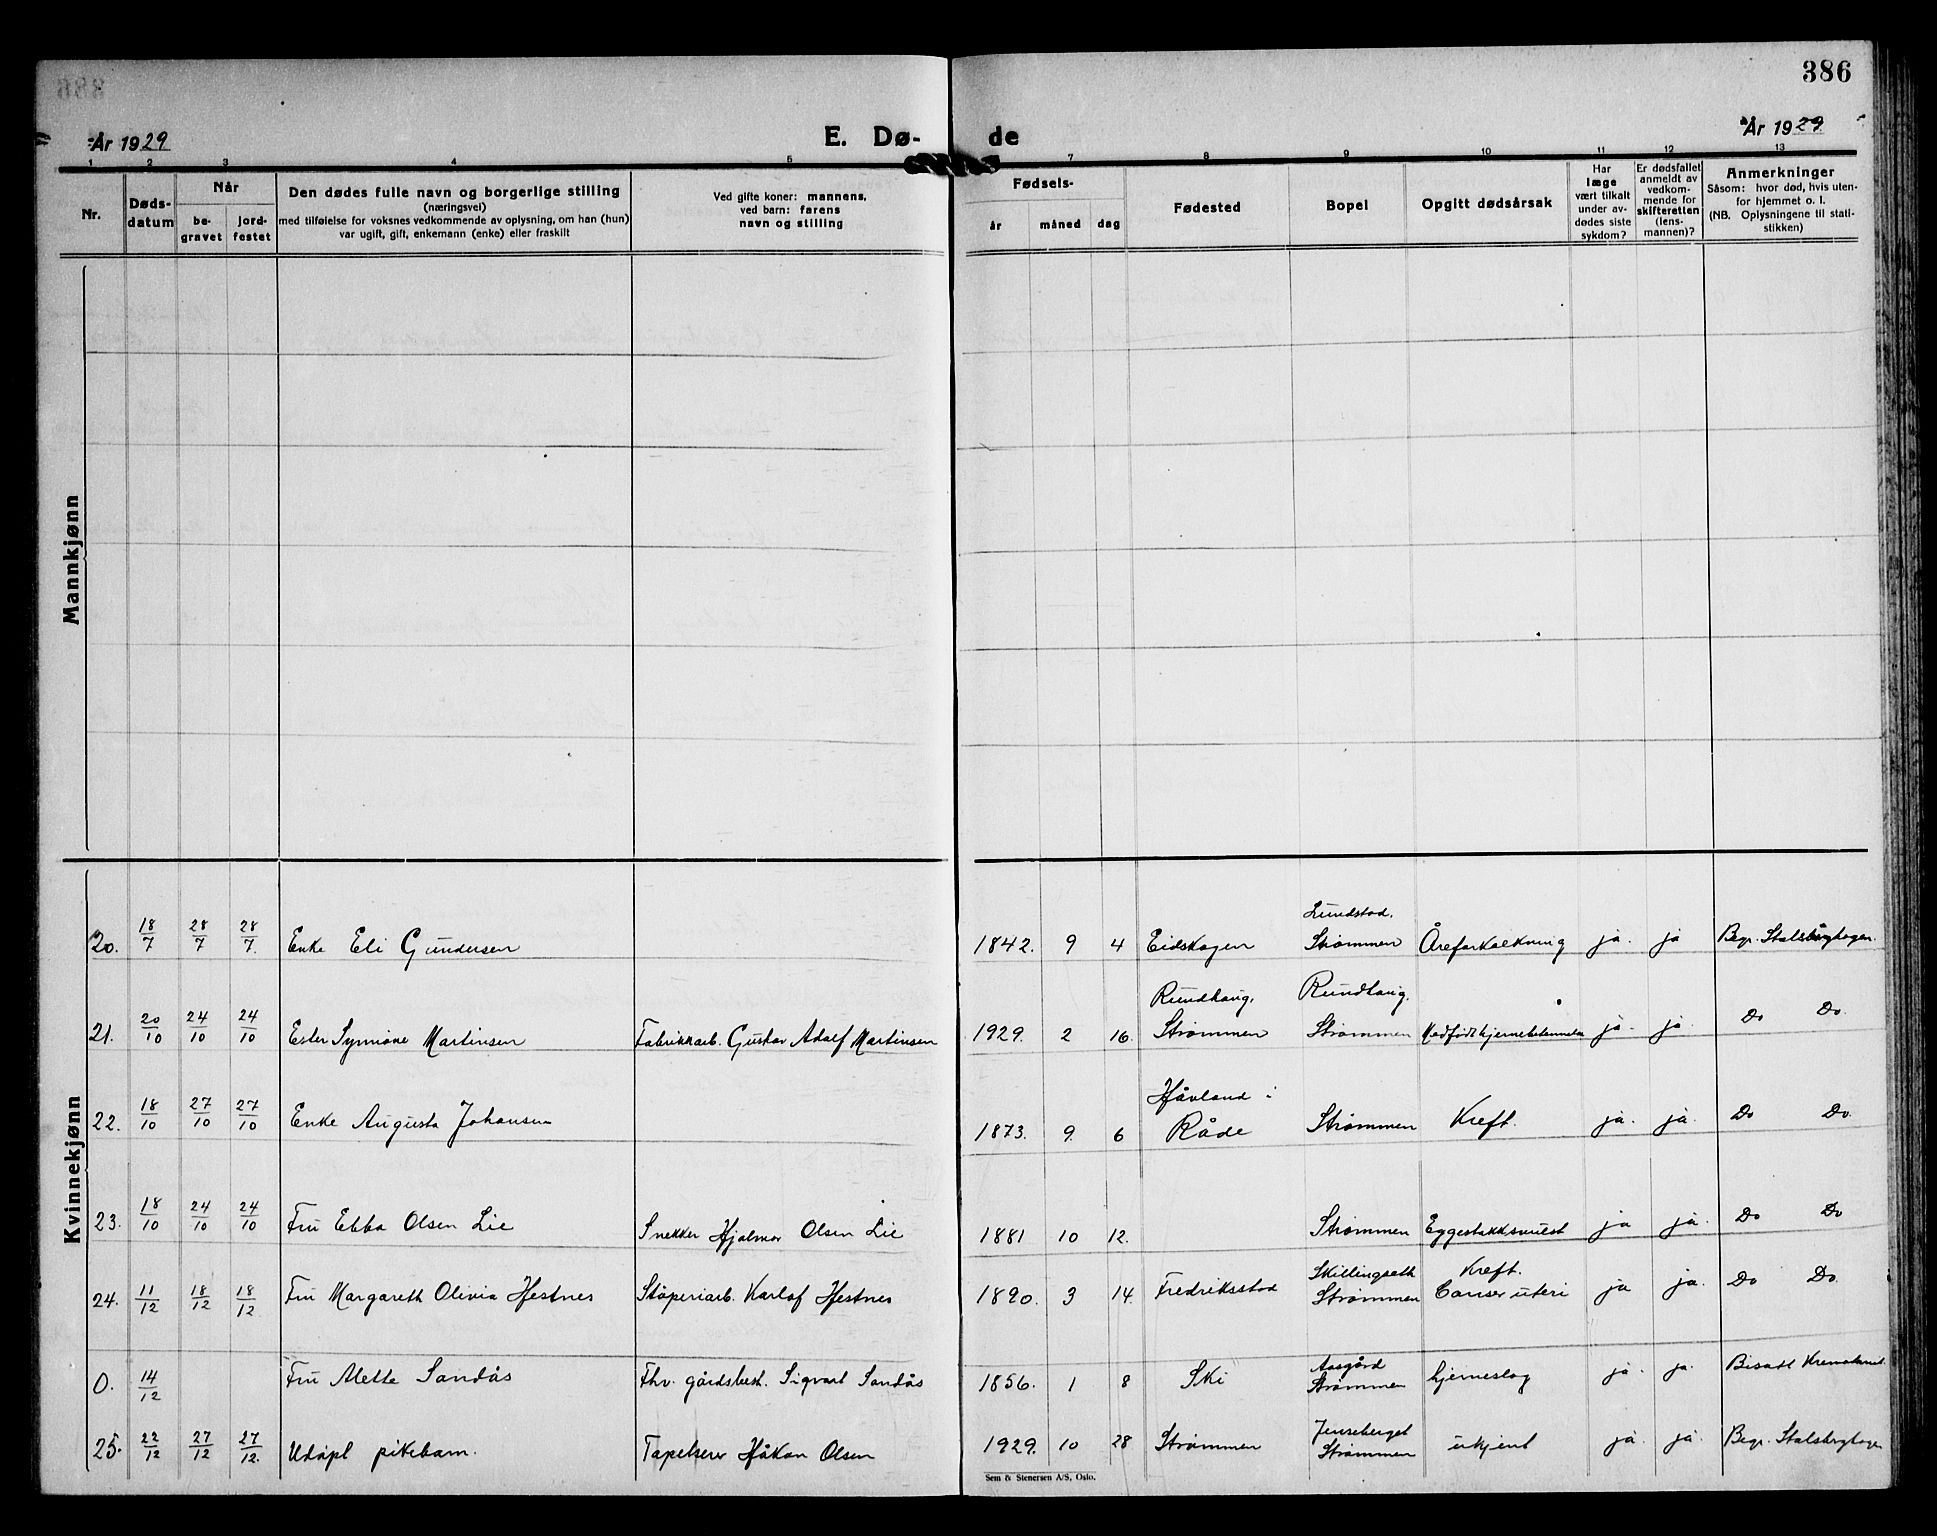 386
År 1929
E. Dø-
de
År 1929.
1 2 3 4 5 7 8 9 10 11 12 13
Nr.
Døds-
datum
Når
be-
gravet
jord-
festet
Den dødes fulle navn og borgerlige stilling
(næringsvei)
med tilføielse for voksnes vedkommende av oplysning, om han (hun)
var ugift, gift, enkemann (enke) eller fraskilt
Ved gifte koner: mannens,
ved barn: farens
navn og stilling
Fødsels-
år måned dag
Fødested
Bopel
Opgitt dødsårsak
Har
læge
vært tilkalt
under av-
dødes siste
sykdom?
Er dødsfallet
anmeldt av
vedkom-
mende for
skifteretten
(lens-
mannen)?
Anmerkninger
Såsom: hvor død, hvis uten-
for hjemmet o. l.
(NB. Oplysningene til stati-
stikken)
Mannkjønn
Kvinnekjønn
Lundstad.
20. 18/7 28/7 28/7. Enke Eli Gundersen 1842. 9 4 Eidskogen Strømmen Åreforkalkning ja. ja Begr. Stalsberghagen.
Rundhaug. Rundhaug.
21. 20/10 24/10 24/10 Ester Synnøve Martinsen Fabrikkarb. Gustav Adolf Martinsen 1929. 2 16. Strømmen Strømmen Medfødt hjernebetennelse ja. ja. Do Do.
Håvland i
22. 18/10 27/10 27/10 Enke Augusta Johansen 1873. 9. 6 Råde Strømmen Kreft. ja. ja. Do Do.
23. 18/10 24/10 24/10 Fru Ebba Olsen Lie Snekker Hjalmar Olsen Lie 1881 10 12. Strømmen Eggestokksvulst ja ja. Do Do
Skillingseth Kreft.
24. 11/12 18/12 18/12. Fru Margareth Olivia Hestnes Støperiarb. Karlof Hestnes 1890. 3 14. Fredriksstad Strømmen Canser uteri ja ja. Do Do.
Aasgård
0. 14/12 Fru Alette Sandås Fhv. gårdsbest. Sigvart Sandås 1856. 1 8 Ski Strømmen hjerneslag ja. ja. Bisatt Krematoriet.
Jenseberget
25. 22/12 27/12 27/12. Udøpt pikebarn. Tapetserer Håkon Olsen 1929. 10 28 Strømmen Strømmen ukjent ja. ja. Begr. Stalsberghagen
Sem & Stenersen A/S, Oslo.